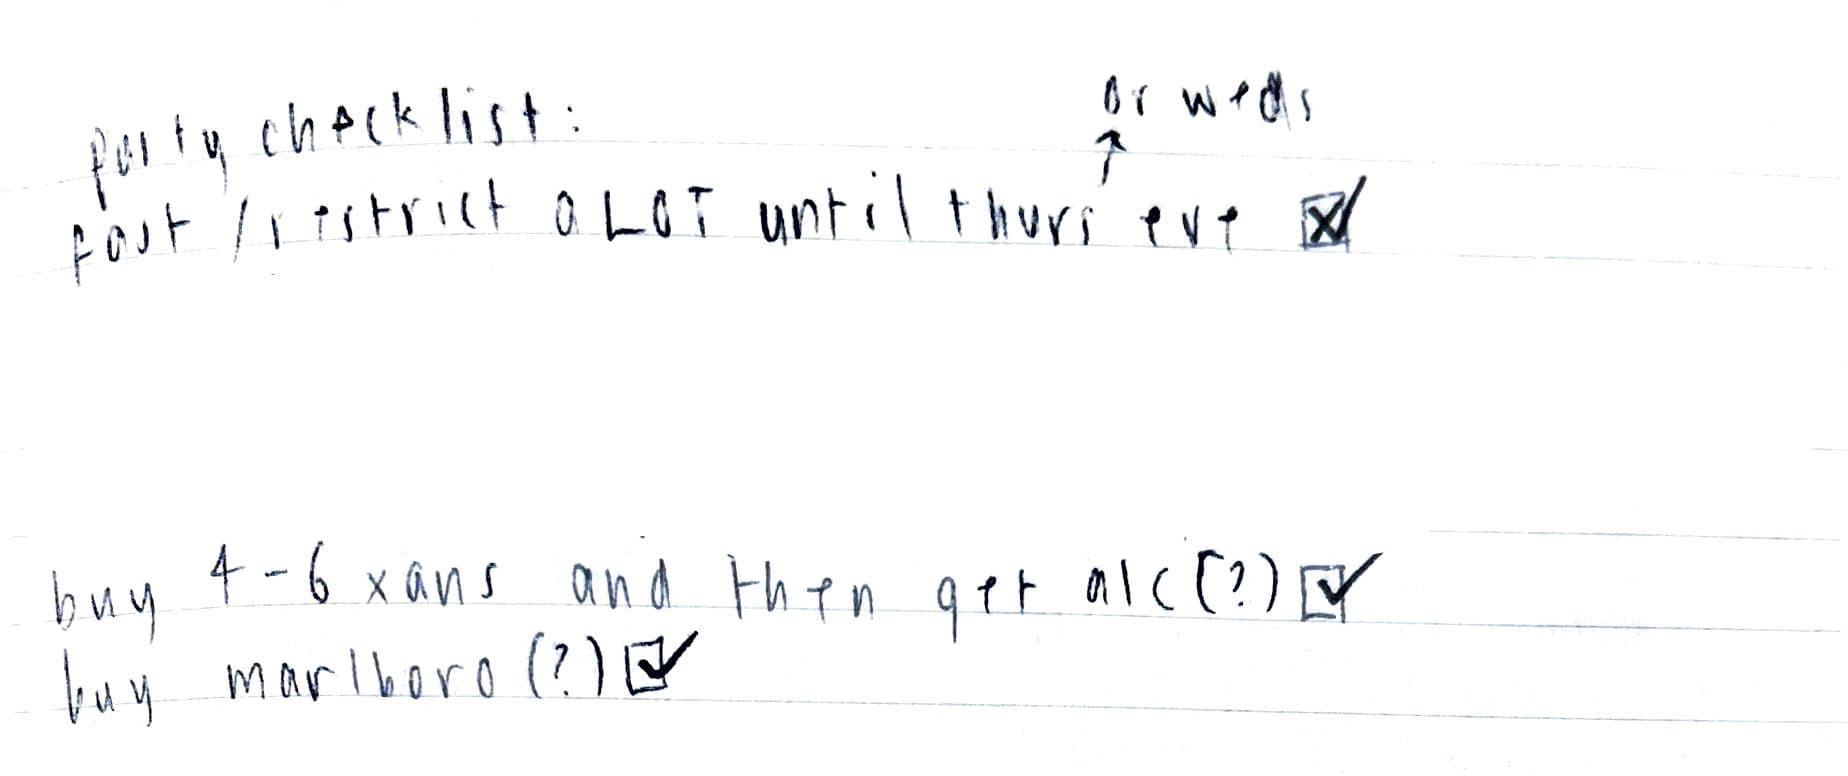 or weds
party checklist:
fast / restrict a LOT until thurs eve
buy 4-6 xans and then get alc (?)
buy marlboro (?)